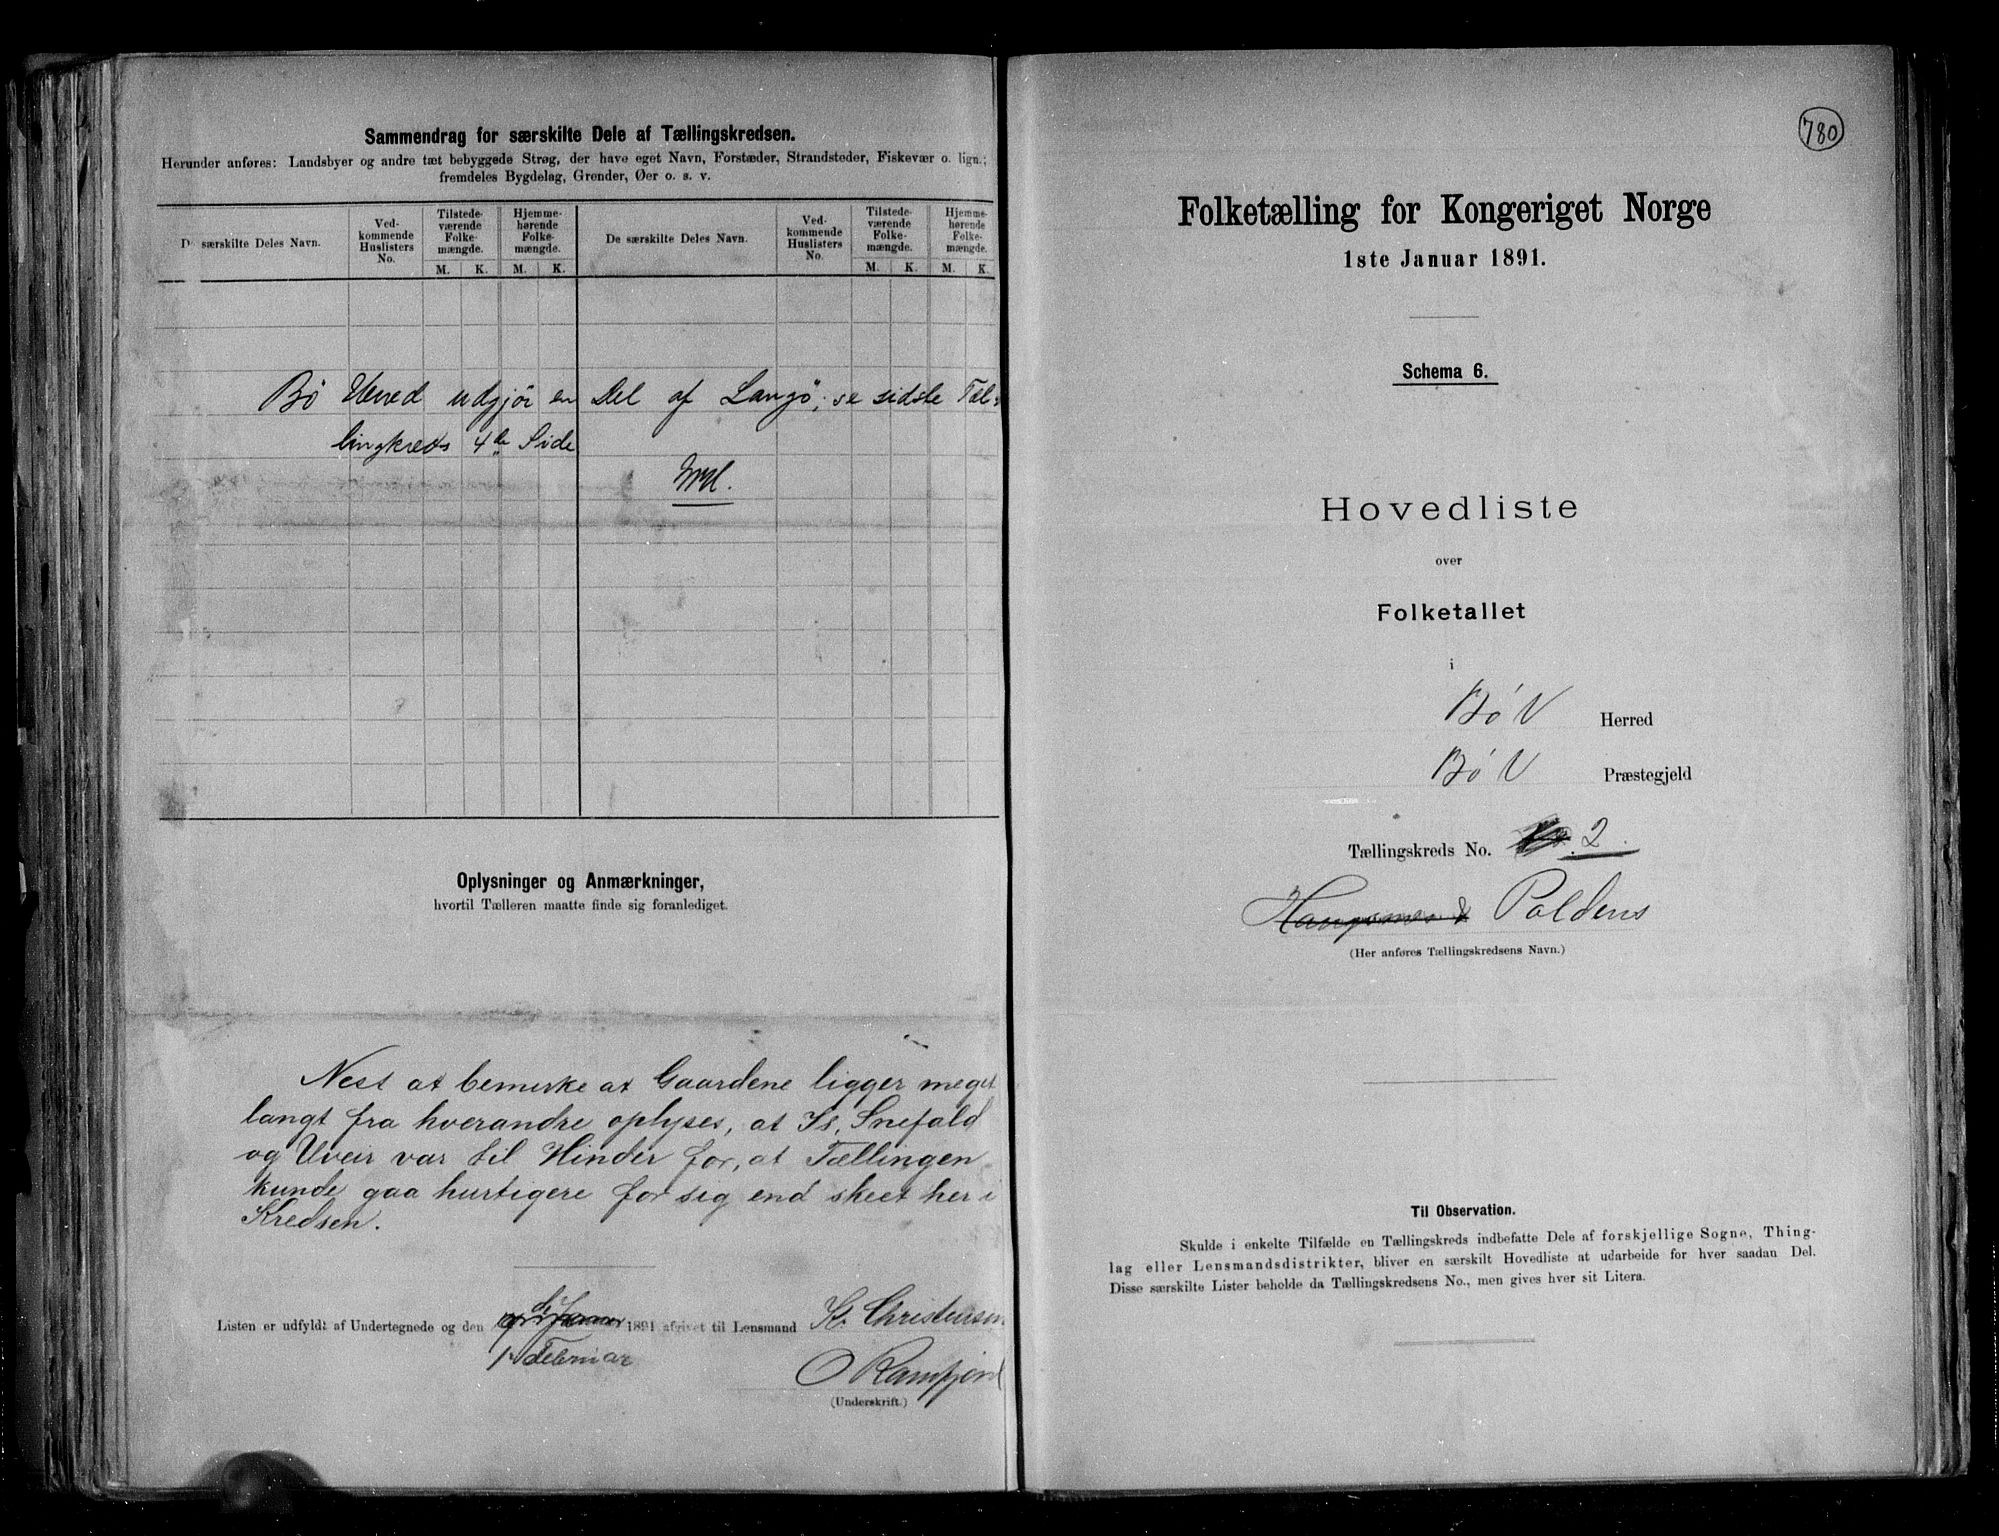 Sammendrag for særskilte Dele af Tællingskredsen.
Herunder anføres: Landsbyer og andre tæt bebyggede Strøg, der have eget Navn, Forstæder, Strandsteder, Fiskevær o. lign.;
fremdeles Bygdelag, Grender, Øer o. s. v.
De særskilte Deles Navn.
Ved-
kommende
Huslisters
No.
Tilstede-
værende
Folke-
mængde.
M. K.
Hjemme-
hørende
Folke-
mængde.
M. K.
De særskilte Deles Navn.
Ved-
kommende
Huslisters
No.
Tilstede-
værende
Folke-
mængde.
M. K.
Hjemme-
hørende
Folke-
mængde.
M. K.
Bø Herred udgjör en Del af Langö; se sidste Tæl-
lingkreds 4de Side
Oplysninger og Anmærkninger,
hvortil Tælleren maatte finde sig foranlediget.
Nest at bemerke at Gaardene ligger meget
langt fra hverandre oplyses, at Is, Snefald
og Uveir var til Hinder for, at Tællingen
kunde gaa hurtigere for sig end skeet her i
Kredsen.
Listen er udfyldt af Undertegnede og den 1891 afgivet til Lensmand K. Christensen
1 Februar
O Ramfjord
(Underskrift.)
780
Folketælling for Kongeriget Norge
1ste Januar 1891.
Schema 6.
Hovedliste
over
Folketallet
i
Bø V Herred
Bø V Præstegjeld
Tællingskreds No. 2.
Poldens
(Her anføres Tællingskredsens Navn.)
Til Observation.
Skulde i enkelte Tilfælde en Tællingskreds indbefatte Dele af forskjellige Sogne, Thing-
lag eller Lensmandsdistrikter, bliver en særskilt Hovedliste at udarbeide for hver saadan Del.
Disse særskilte Lister beholde da Tællingskredsens No., men gives hver sit Litera.